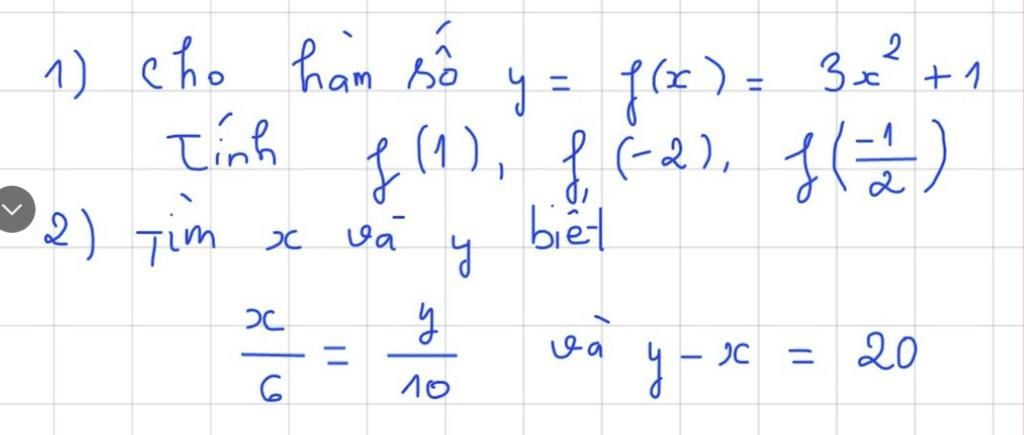 1) Cho hàm số y = f(x) = 3x² + 1
Tính f(1), f(-2), f(-1/2)
2) Tìm x và y biết
x/6 = y/10 và y - x = 20